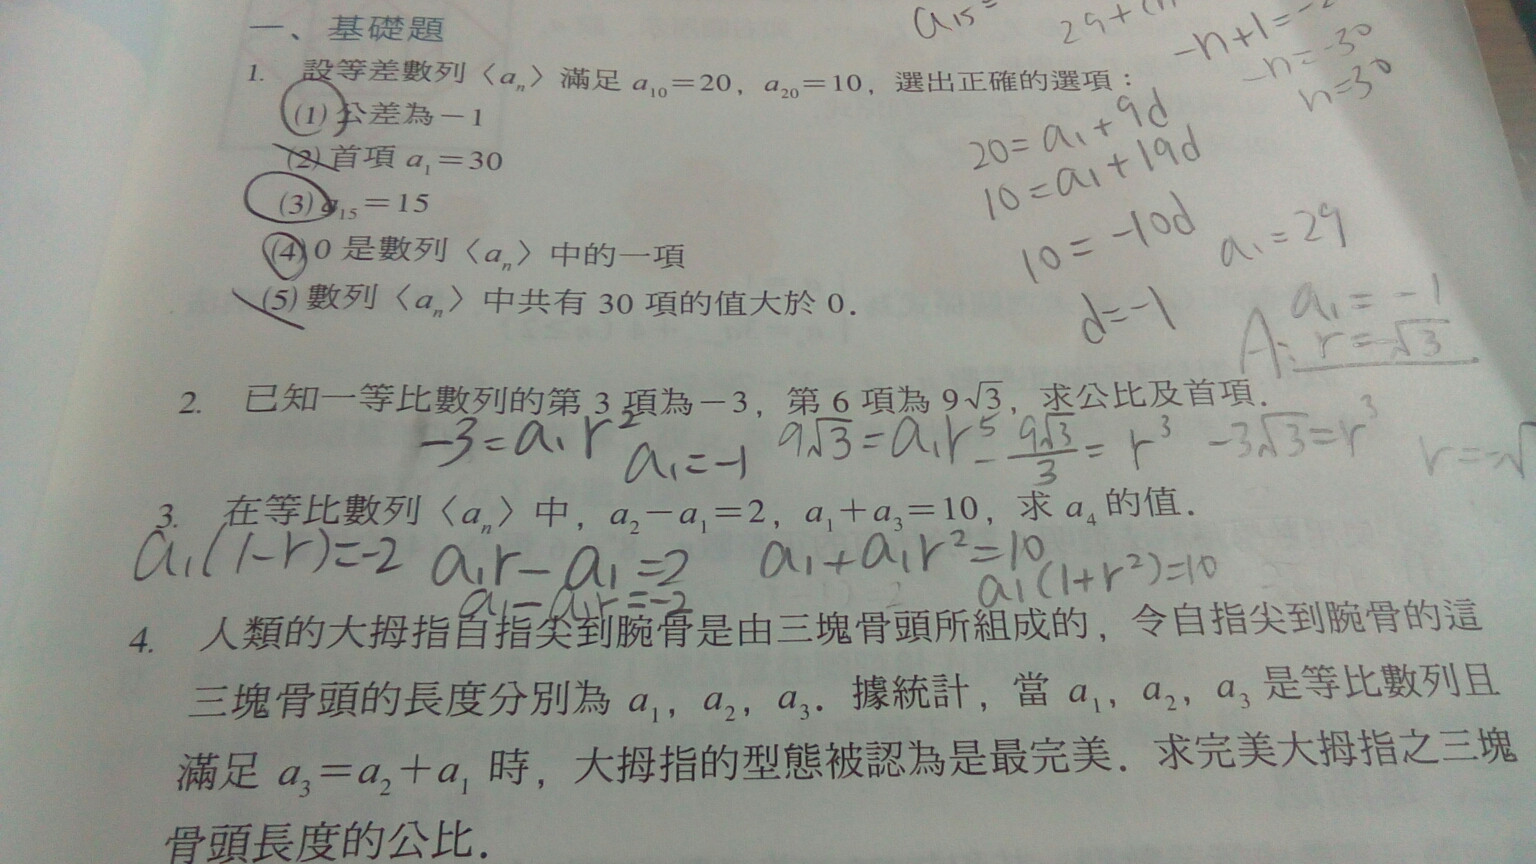 一、基礎題
a15=
29+(n
-n+1=-2
-n=-30
n=30
1. 設等差數列〈an〉滿足 a10=20，a20=10，選出正確的選項：
(1) 公差為-1
(2) 首項 a1=30
(3) a15=15
(4) 0 是數列〈an〉中的一項
(5) 數列〈an〉中共有 30 項的值大於 0．
20=a1+9d
10=a1+19d
10=-10d
d=-1
a1=29
2. 已知一等比數列的第 3 項為-3，第 6 項為 9√3，求公比及首項．
A: a1=-1
r=-√3
-3=a1r²
a1=-1
9√3=a1r⁵
-9√3/3=r³
-3√3=r³
r=-√
3. 在等比數列〈an〉中，a2-a1=2，a1+a3=10，求 a4 的值．
a1(1-r)=-2
a1r-a1=2
a1-a1r=-2
a1+a1r²=10
a1(1+r²)=10
4. 人類的大拇指自指尖到腕骨是由三塊骨頭所組成的，令自指尖到腕骨的這
三塊骨頭的長度分別為 a1，a2，a3．據統計，當 a1，a2，a3 是等比數列且
滿足 a3=a2+a1 時，大拇指的型態被認為是最完美．求完美大拇指之三塊
骨頭長度的公比．